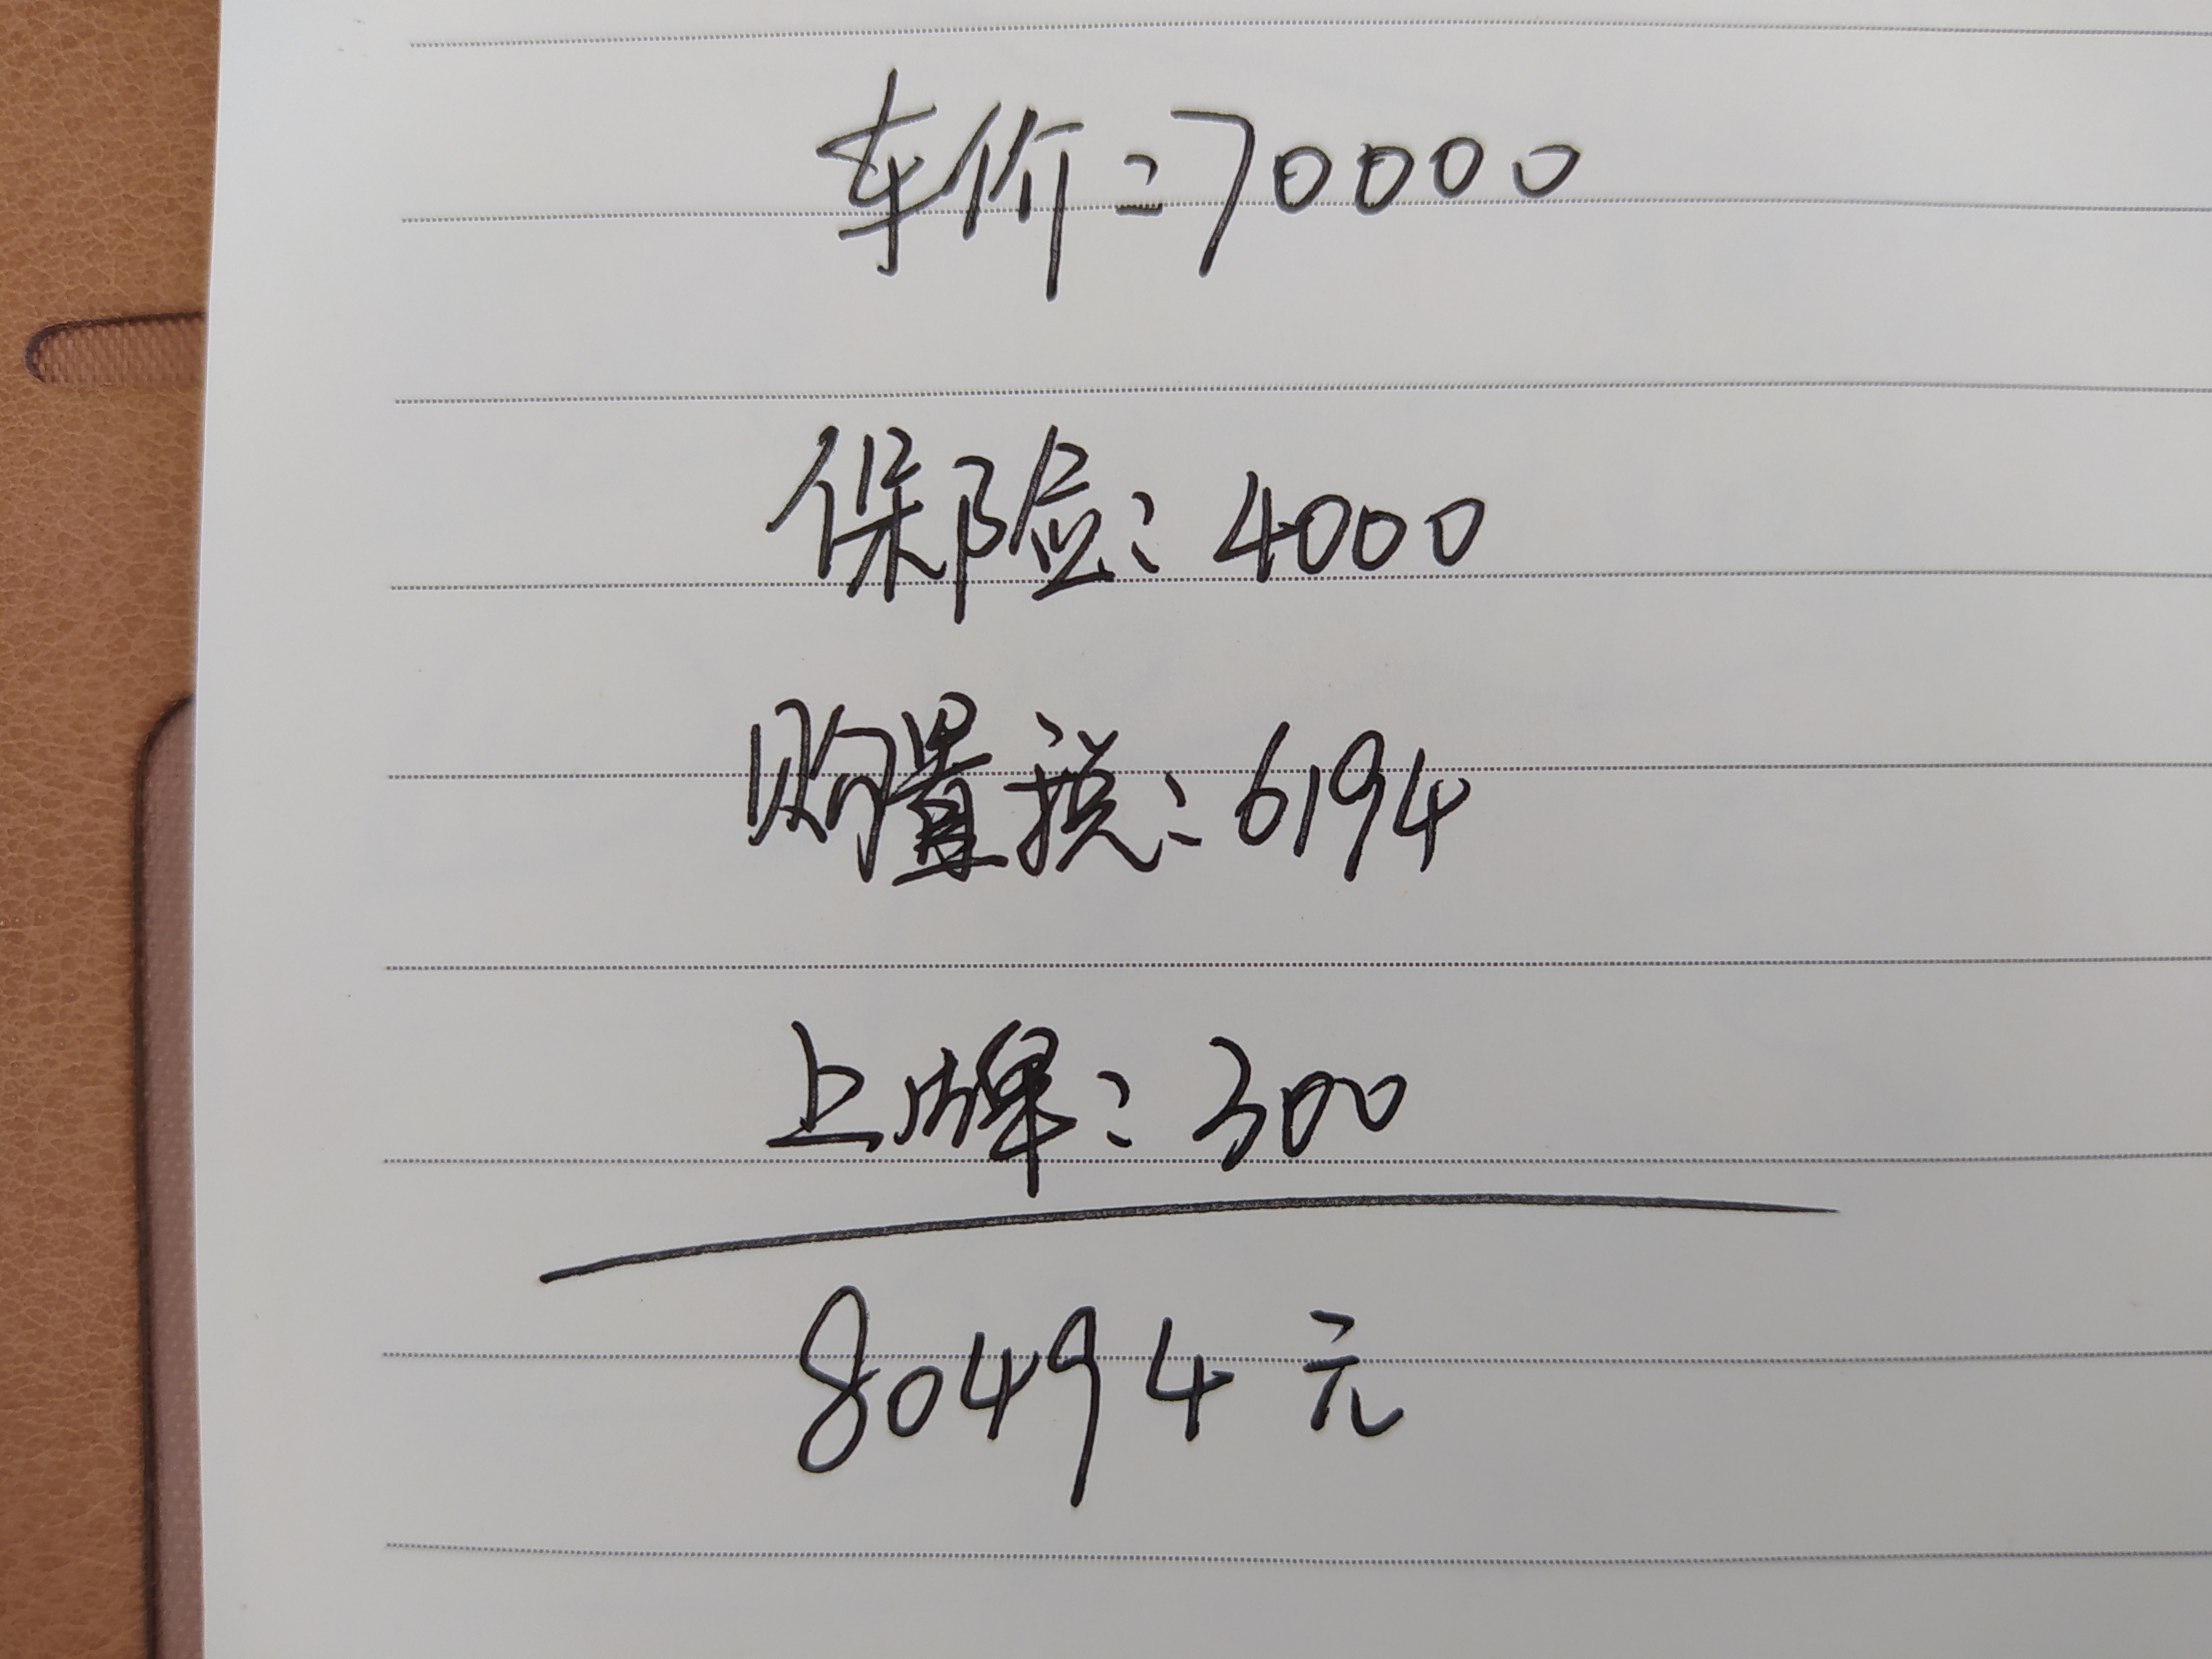 车价：70000
保险：4000
购置税：6194
上牌：300
80494元